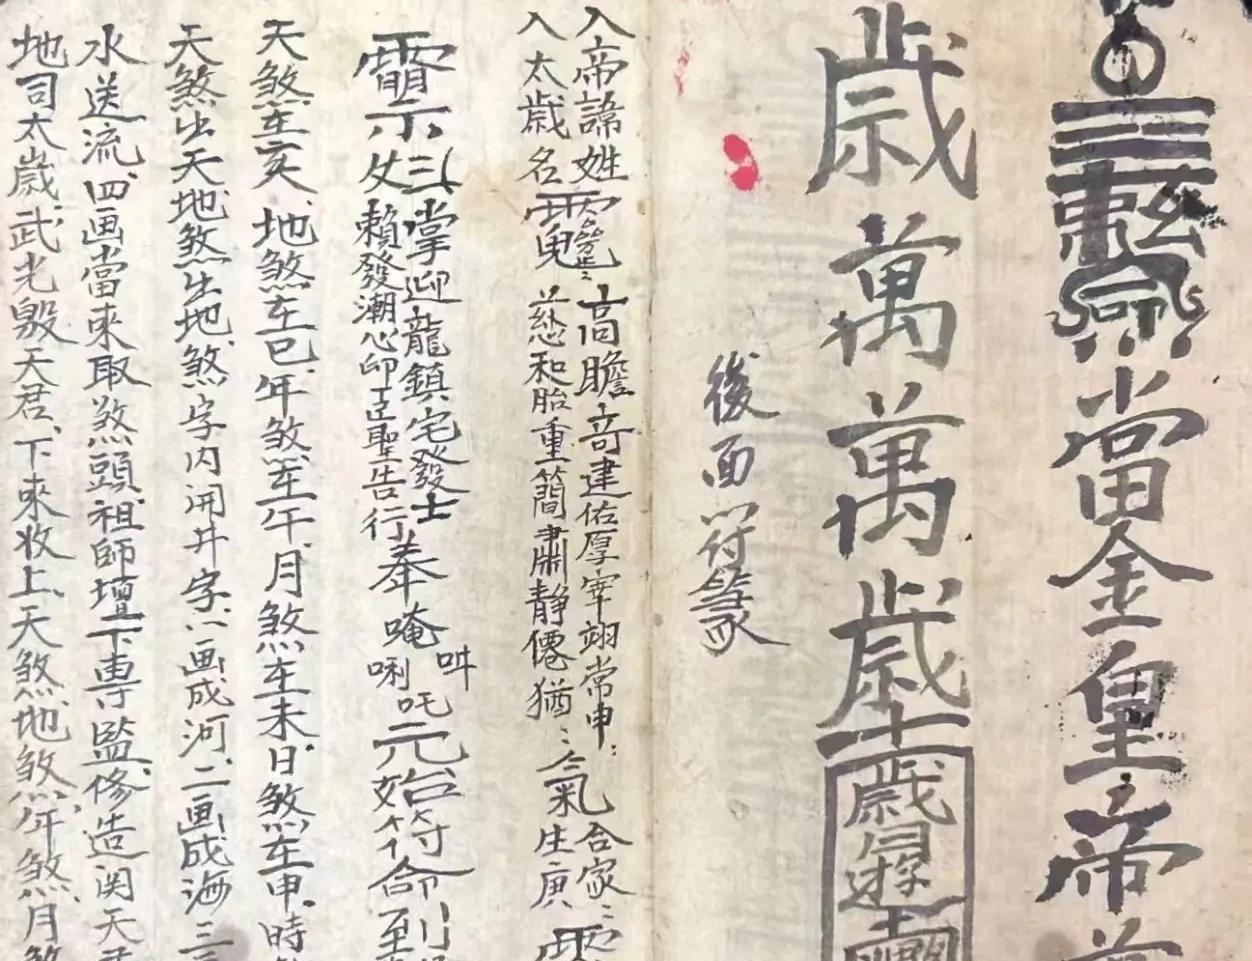 當金皇帝萬
歲萬萬歲
後面符篆
入帝諱姓 高瞻奇建佑厚宰翊常申 合家
入太歲名 慈和胎重簡肅静僊猶 氣生庚
掌迎龍鎮宅發士
賴發潮心印 聖告行
奉唵吽唎吒元始符命到
天煞在亥地煞在巳年煞在午月煞在未日煞在申時
天煞出天地煞出地煞字内開井字一画成河二画成海三
水送流四画當來取煞頭祖師壇下專監修造関天君
地司太歲武光殷天君下來收上天煞地煞年煞月煞